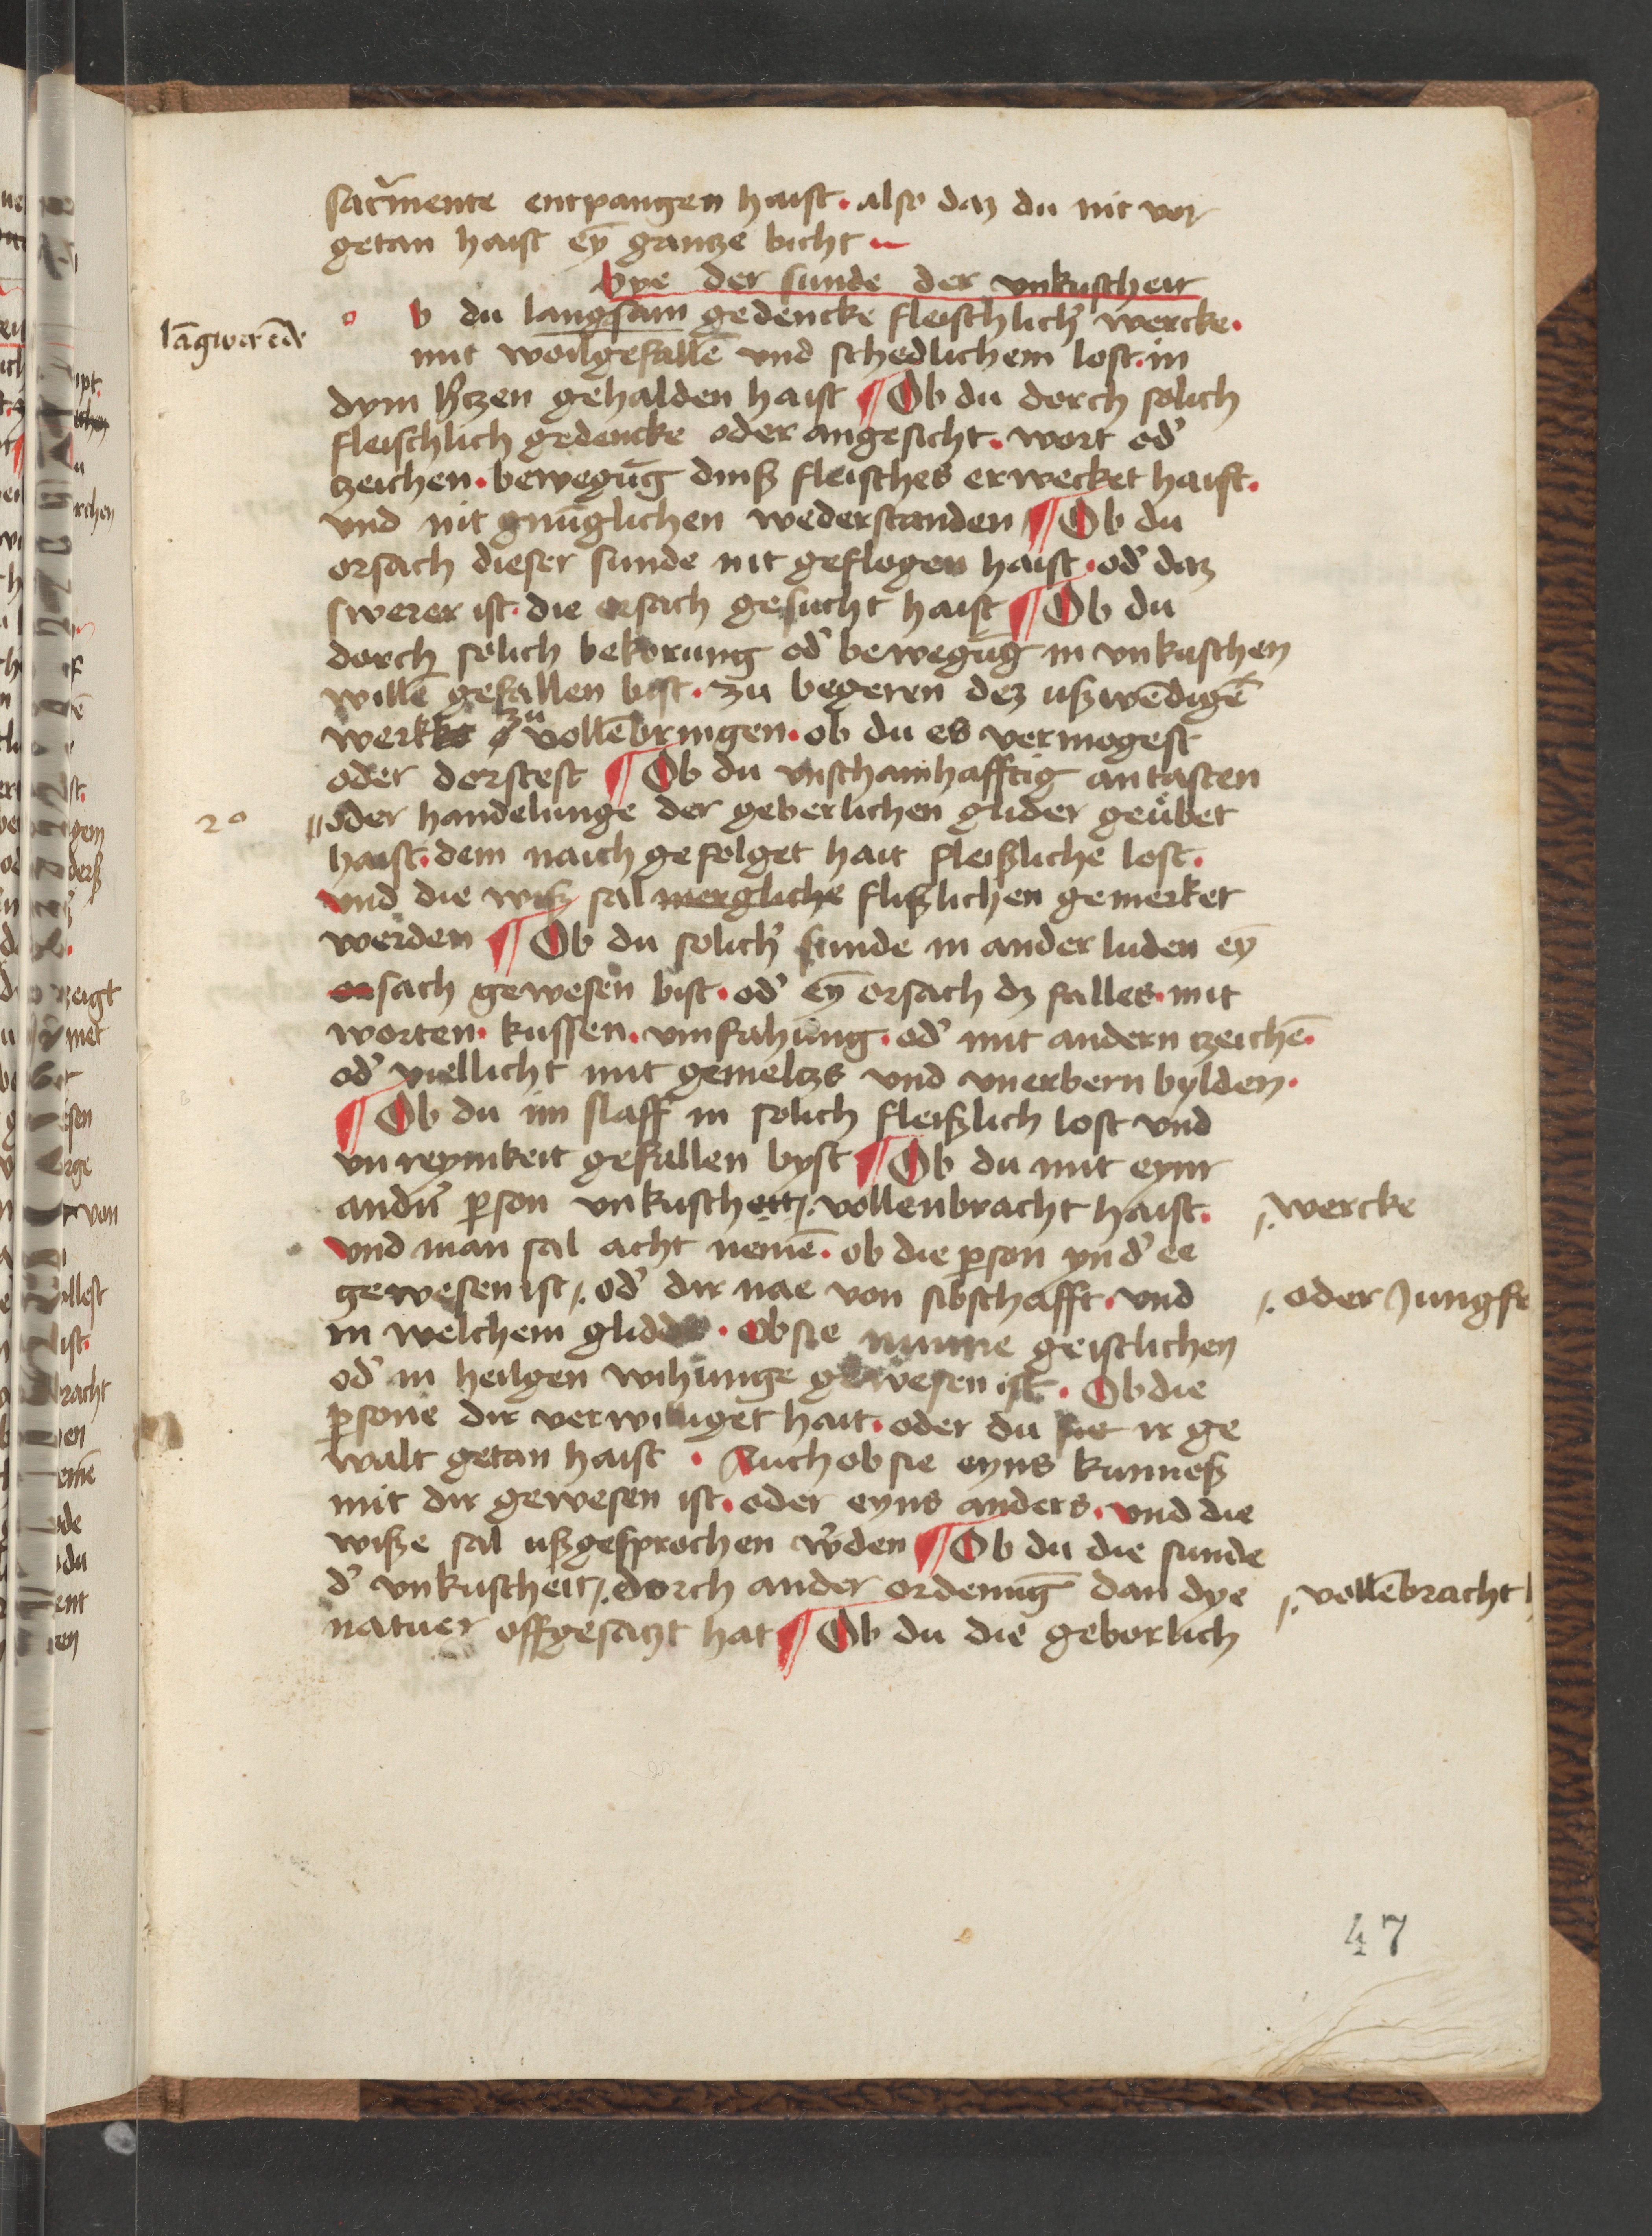 sacr̃mente entpangen haist. also daz du nit vor
getan haist eȳ gantze bicht
vye der sunde der vnkuscheit
o b du langsam gedencke fleischlich' wercke.
lāgwerēde
mit woilgefallē vnd schedlichem lost. in
dym h'tzen gehalden haist ¶ Ob du dorch solich
fleischlich gedencke oder angesicht. wort od'
zeichen. bewegūg dinß fleisches erwecket haist.
vnd nit gnūglichen wederstanden ¶ Ob du
orsach dieser sunde nit geflogen haist. od' daz
swerer ist. die orsach gesucht haist ¶ Ob du
dorch solich bekorung od' bewegūg in vnkuschen
willē gefallen bist. zu begeren dez ußwēdigē
werkes zu vollēbringen. ob du es vermogest
oder dorstest ¶ Ob du vnschamhafftig antasten
20 oder handelunge der geberlichen glider geůbet
haist. dem naich gefolget hait fleißliche lost.
vnd die wiß sal mergliche flißlichen gemerket
werden ¶ Ob du solich' sunde in ander luden eȳ
orsach gewesen bist. od' eȳ orsach dz falles. mit
worten. kussen. vmfahung. od' mit andern zeichē.
od' viellicht mit gemeltzs vnd vnerbern bylden.
¶ Ob du im slaff in solich fleißlich lost vnd
vnreynikeit gefallen byst ¶ Ob du mit eynr
andn' ꝑson vnkuscheit/. vollenbracht haist. /. wercke
vnd man sal acht nemē. ob die ꝑson yn d' ee
gewesen ist/. od' dir nae von sibschafft. vnd /. oder Jungfr
in welchem glidde. Ob sie nunne geistlichen
od' in heilgen wihunge gewesen ist. Ob die
ꝑsone dir verwilliget hait. oder du ir ge
walt getan haist. Auch ob sie eyns kunneß
mit dir gewesen ist. oder eyns anders. vnd die
wiße sal ußgesprochen w'den ¶ Ob du die sunde
d' vnkuscheit/. dorch ander ordenūg dan dye /. vollēbracht
natuer offgesatzt hat ¶ Ob du die geborlich
47